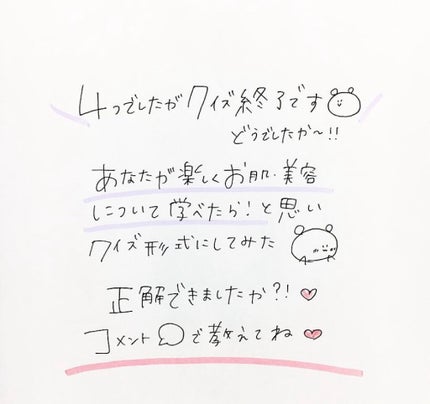 4つでしたがクイズ終了です
どうでしたか〜!!
あなたが楽しくお肌・美容
について学べたら!と思い
クイズ形式にしてみた
正解できましたか?!
コメントで教えてね